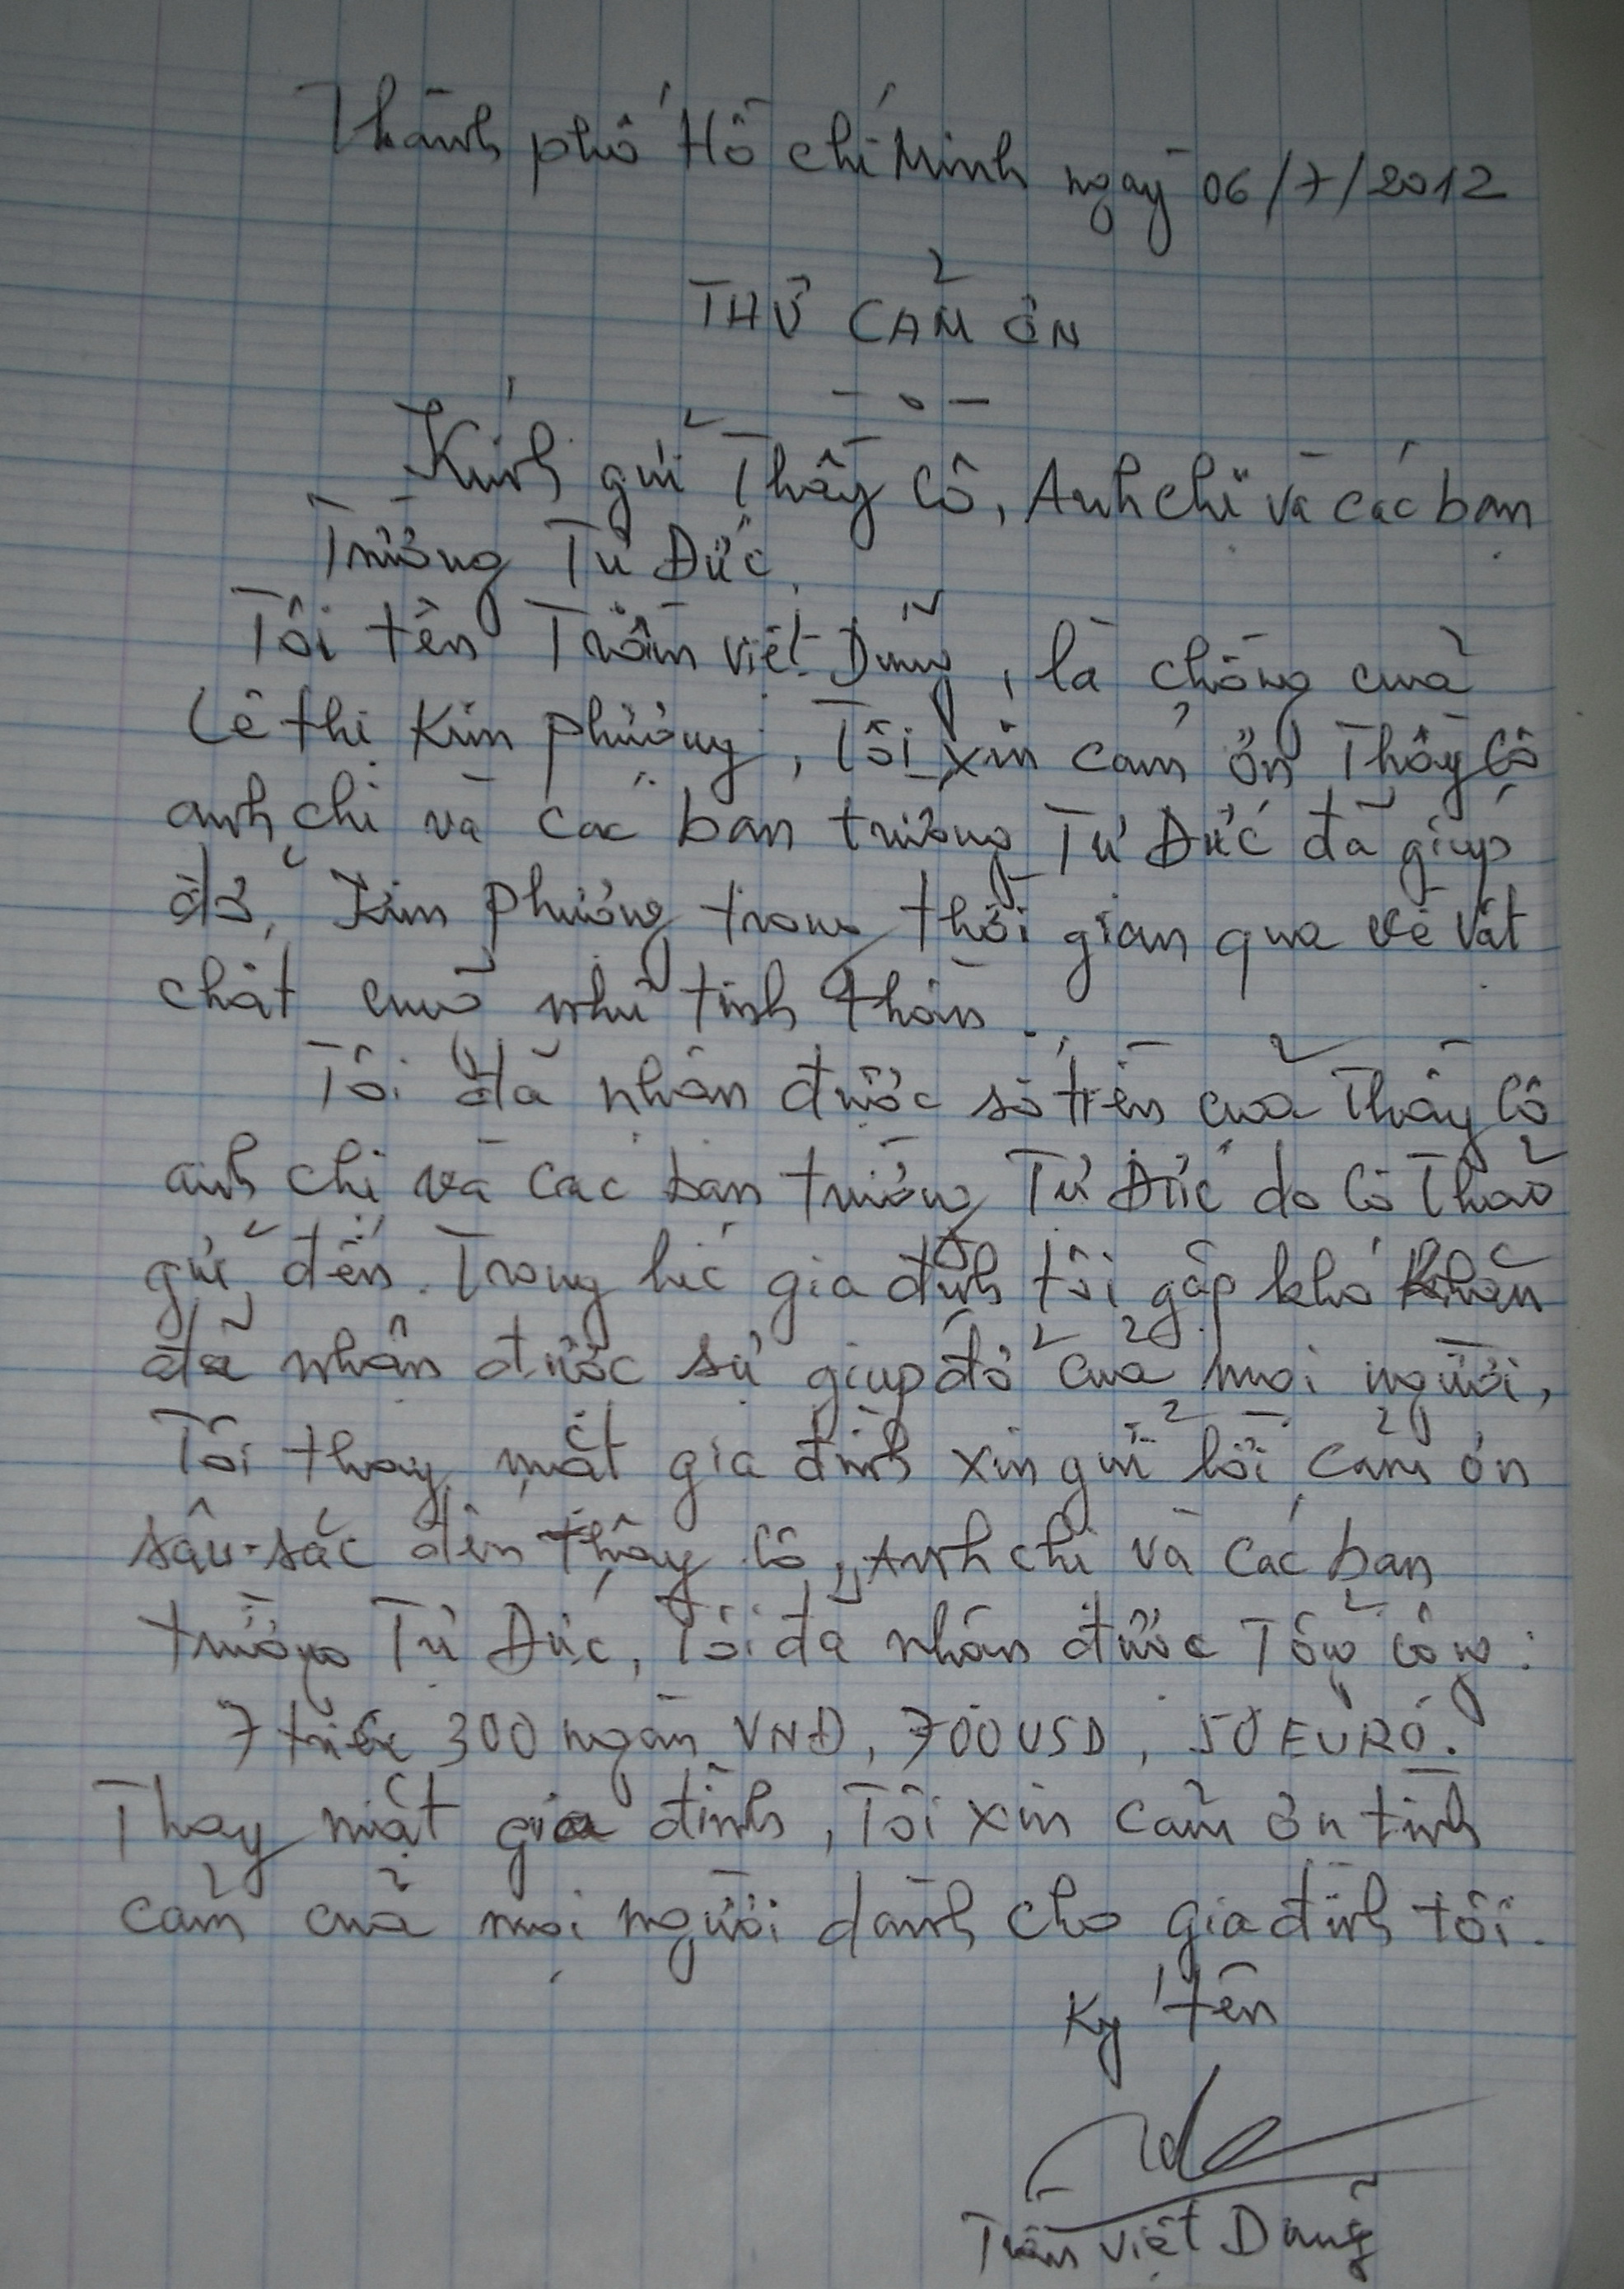 Thành phố Hồ chí Minh ngày 06/7/2012
THƯ CẢM ƠN
Kính gửi Thầy Cô, Anh chị và các bạn
Trường Tư Đức.
Tôi tên Trần Việt Dũng, là chồng của
Lê thị Kim Phương, Tôi xin cảm ơn Thầy Cô
anh chị và các bạn trường Tư Đức đã giúp
đỡ, Kim Phương trong thời gian qua về vật
chất cũng như tinh thần.
Tôi đã nhận được số tiền của Thầy Cô
anh chị và các bạn trường Tư Đức do Cô Thảo
gửi đến. Trong lúc gia đình tôi gặp khó khăn
đã nhận được sự giúp đỡ của mọi người,
Tôi thay mặt gia đình xin gửi lời cảm ơn
sâu-sắc đến thầy Cô, Anh chị và các bạn
trường Tư Đức, Tôi đã nhận được Tổng cộng:
7 triệu 300 ngàn VNĐ, 700 USD, 50 EURÔ.
Thay mặt gia đình, Tôi xin cảm ơn tình
cảm của mọi người dành cho gia đình tôi.
Ký tên
Trần Việt Dũng